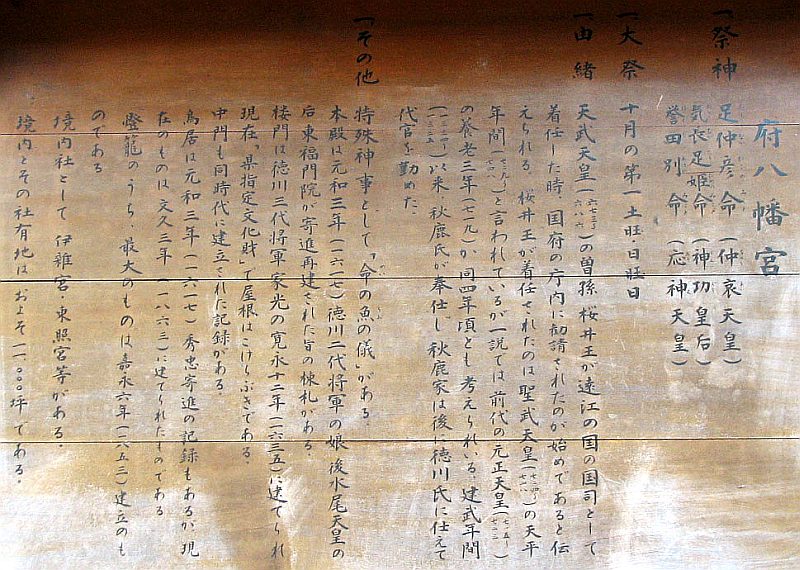 府八幡宮
一祭神 足仲彦命(仲哀天皇)
気長足姫命(神功皇后)
誉田別命(応神天皇)
一大祭 十月の第一土旺・日旺日
一由緒 天武天皇(六七三〜六八六)の曽孫桜井王が遠江の国の国司として
着任した時、国府の庁内に勧請されたのが始めであると伝
えられる。桜井王が着任されたのは聖武天皇(七二四〜)の天平
年間(七二九〜)と言われているが一説では前代の元正天皇(七一五〜)
の養老三年(七一九)か同四年頃とも考えられいる。建武年間
(一三三四〜)以来、秋鹿氏が奉仕し秋鹿家は後に徳川氏に仕えて
代官を勤めた。
一その他 特殊神事として「命の魚の儀」がある。
本殿は元和三年(一六一七)徳川二代将軍の娘後水尾天皇の
后東福門院が寄進再建された旨の棟札がある。
楼門は徳川三代将軍家光の寛永十二年(一六三五)に建てられ
現在「県指定文化財」で屋根はこけらぶきである。
中門も同時代に建立された記録がある。
鳥居は元和三年(一六一七)秀忠寄進の記録もあるが、現
在のものは文久三年(一八六三)に建てられたものである
燈籠のうち、最大のものは嘉永六年(一八五三)建立のも
のである
境内社として伊雑宮・東照宮等がある。
境内とその社有地はおよそ一一〇〇〇坪である。